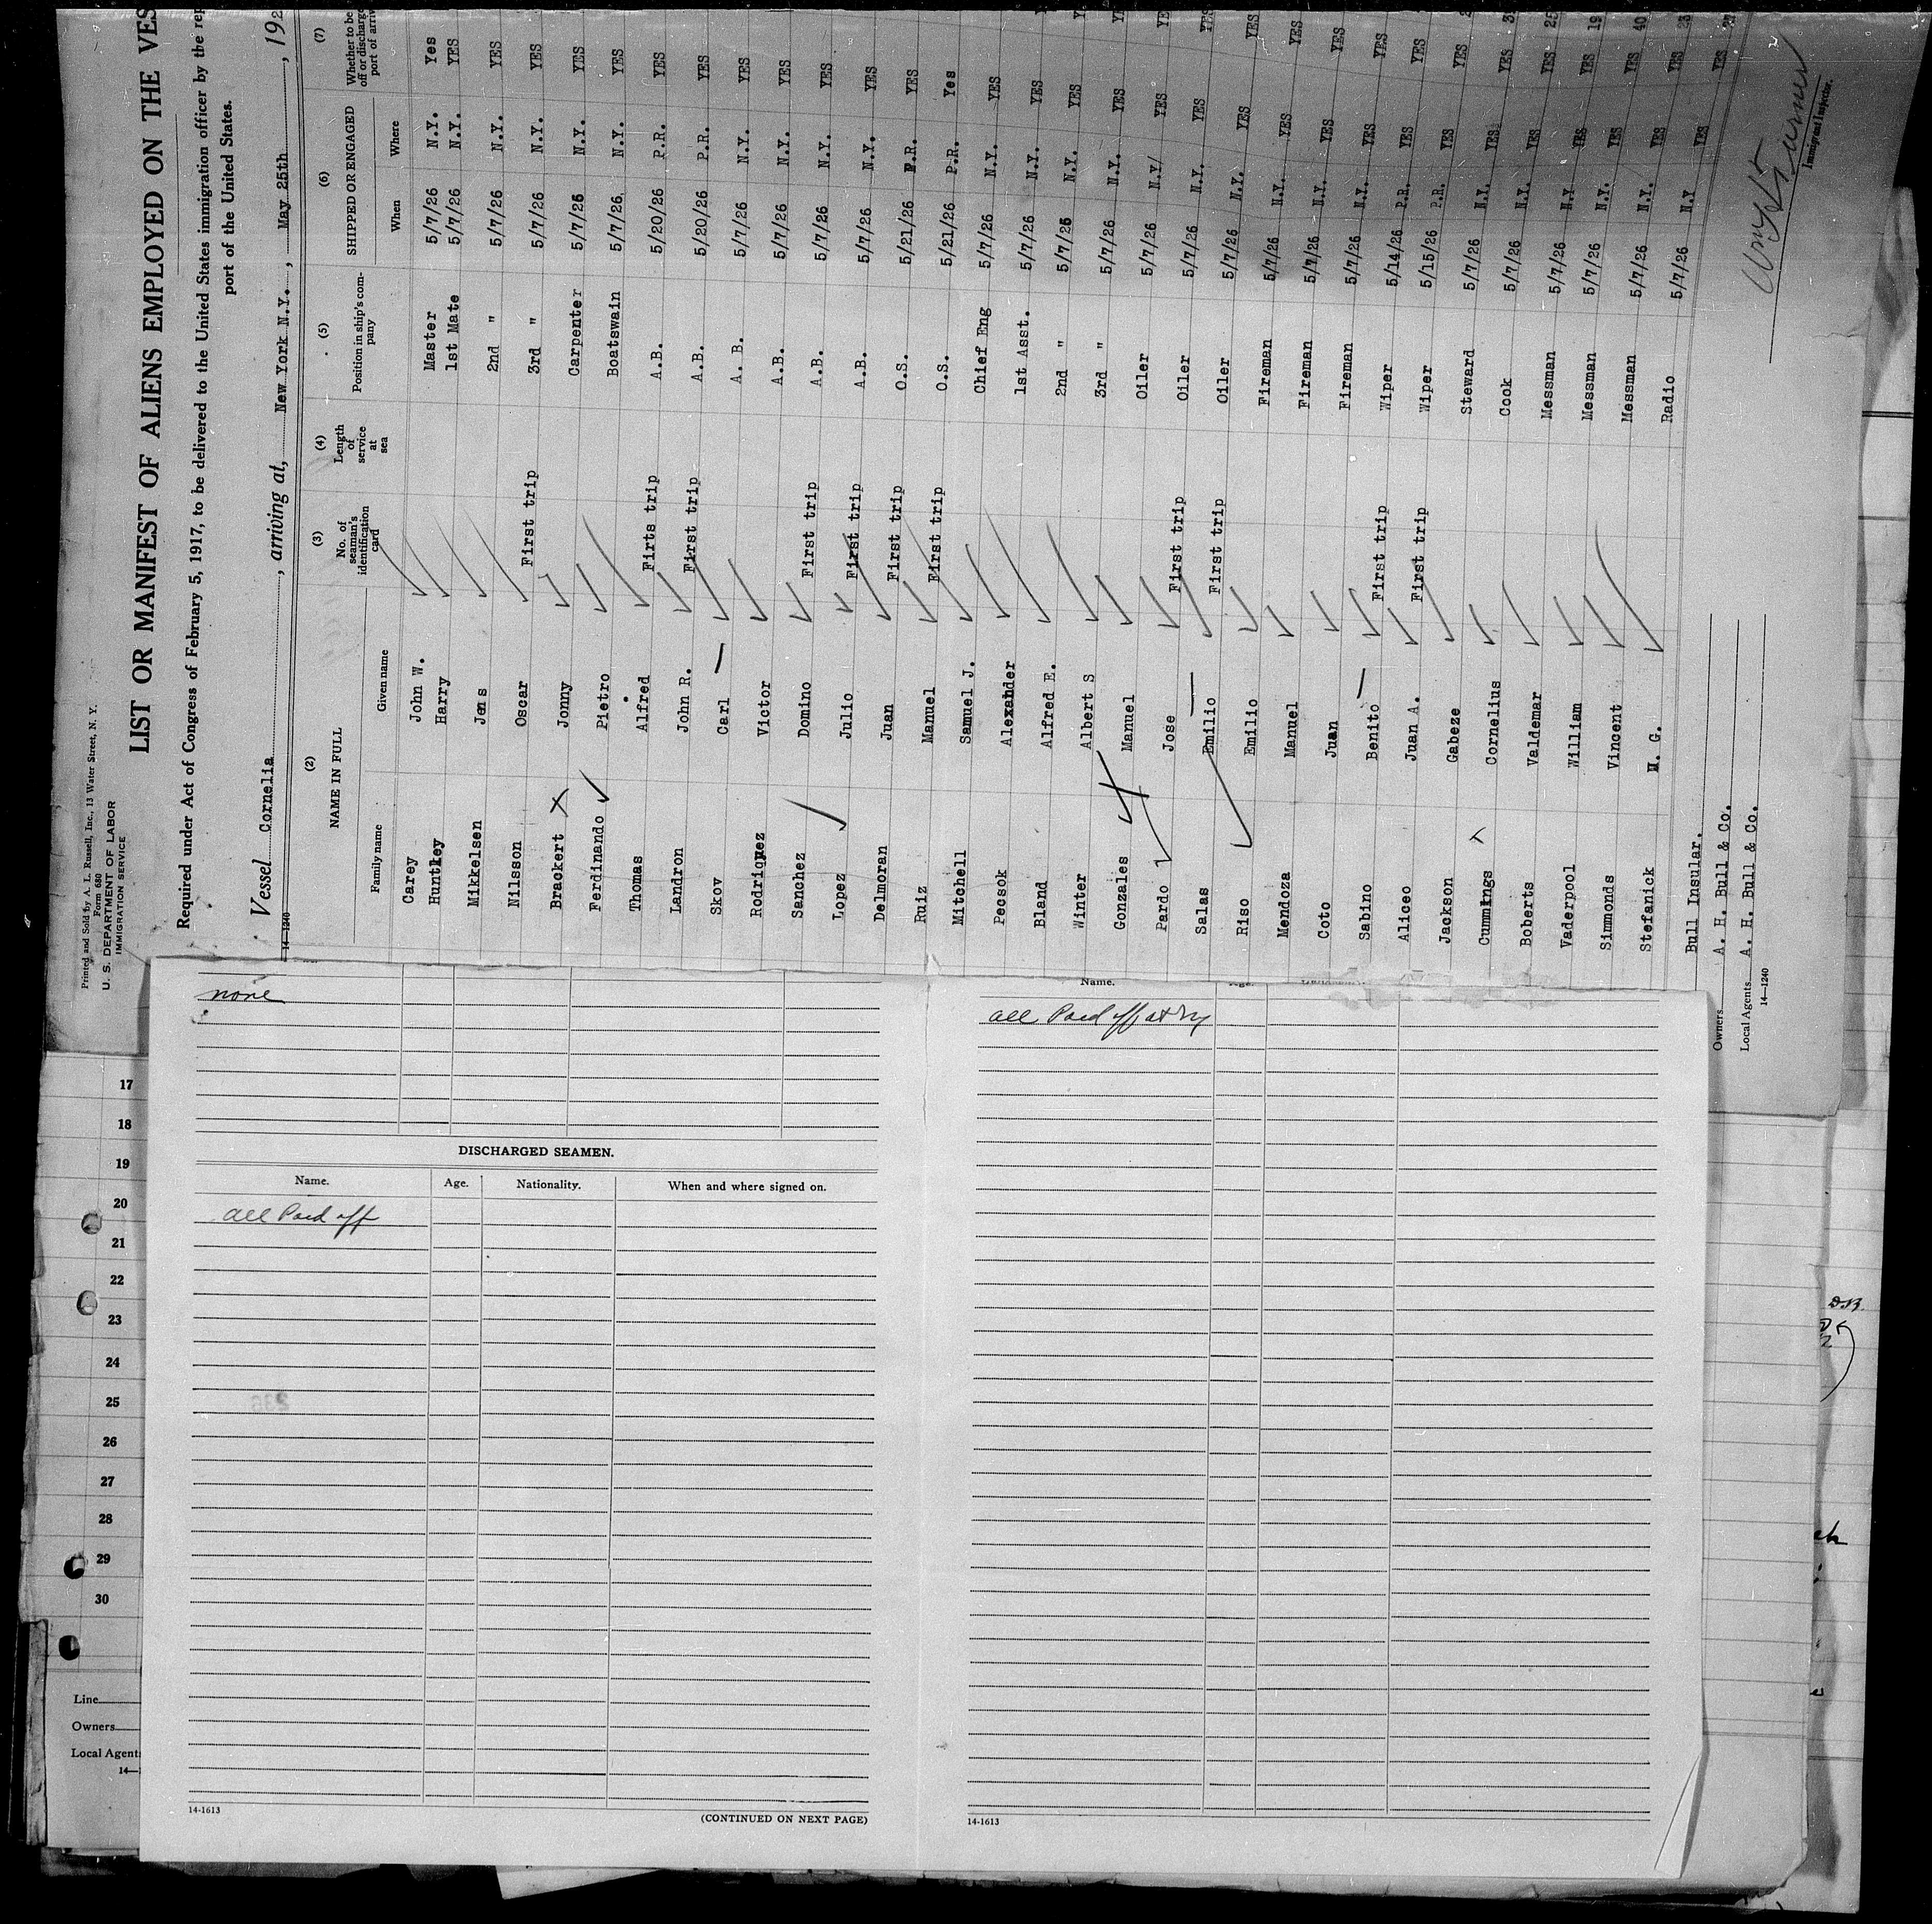 Printed and Sold by A. L. Russell, Inc., 13 Water Street, N. Y.
Form 680
U. S. DEPARTMENT OF LABOR
IMMIGRATION SERVICE
LIST OR MANIFEST OF ALIENS EMPLOYED ON THE VES
Required under Act of Congress of February 5, 1917, to be delivered to the United States immigration officer by the rep
port of the United States.
Vessel Cornelia, arriving at, New York N.Y., May 25th, 192
14—1240
(2) (3) (4) (5) (6) (7)
NAME IN FULL No. of seaman's identification card Length of service at sea Position in ship's company SHIPPED OR ENGAGED Whether to be off or discharge port of arriv
Family name Given name When Where
Carey John W. Master 5/7/26 N.Y. Yes
Huntley Harry 1st Mate 5/7/26 N.Y. YES
Mikkelsen Jens 2nd " 5/7/26 N.Y. YES
Nilsson Oscar First trip 3rd " 5/7/26 N.Y. YES
Brackert Jonny Carpenter 5/7/26 N.Y. YES
Ferdinando Pietro Boatswain 5/7/26 N.Y. YES
Thomas Alfred Firts trip A.B. 5/20/26 P.R. YES
Landron John R. First trip A.B. 5/20/26 P.R. YES
Skov Carl A. B. 5/7/26 N.Y. YES
Rodriquez Victor A.B. 5/7/26 N.Y. YES
Sanchez Domino First trip A.B. 5/7/26 N.Y. YES
Lopez Julio First trip A.B. 5/7/26 N.Y. YES
Delmoran Juan First trip O.S. 5/21/26 P.R. YES
Ruiz Manuel First trip O.S. 5/21/26 P.R. Yes
Mitchell Samuel J. Chief Eng 5/7/26 N.Y. YES
Pecsok Alexander 1st Asst. 5/7/26 N.Y. YES
Bland Alfred E. 2nd " 5/7/26 N.Y. YES
Winter Albert S 3rd " 5/7/26 N.Y. YES
Gonzales Manuel Oiler 5/7/26 N.Y/ YES
Pardo Jose First trip Oiler 5/7/26 N.Y. YES
Salas Emilio First trip Oiler 5/7/26 N.Y. YES
Riso Emilio Fireman 5/7/26 N.Y. YES
Mendoza Manuel Fireman 5/7/26 N.Y. YES
Coto Juan Fireman 5/7/26 N.Y. YES
Sabino Benito First trip Wiper 5/14/26 P.R. YES
Aliceo Juan A. First trip Wiper 5/15/26 P.R. YES
Jackson Gabeze Steward 5/7/26 N.Y. YES
Cummings Cornelius Cook 5/7/26 N.Y. YES
Boberts Valdemar Messman 5/7/26 N.Y YES
Vaderpool William Messman 5/7/26 N.Y. YES
Simmonds Vincent Messman 5/7/26 N.Y. YES
Stefanick M. G. Radio 5/7/26 N.Y YES
Bull Insular.
Owners A. H. Bull & Co.
Local Agents A. H. Bull & Co.
14—1240
Immigrant Inspector.
none
DISCHARGED SEAMEN.
Name. Age. Nationality. When and where signed on.
all Paid off
14-1613
(CONTINUED ON NEXT PAGE)
Name.
all Paid off at NY
14-1613
17
18
19
20
21
22
23
24
25
26
27
28
29
30
Line
Owners
Local Agent
14—